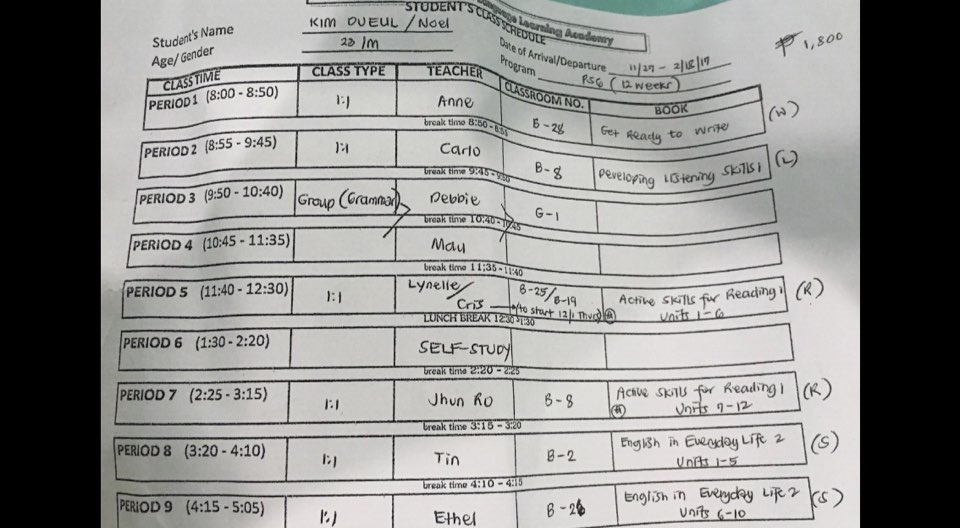 Language Learning Academy
STUDENT'S CLASS SCHEDULE
Student's Name KIM DUEUL / Noel
Age/ Gender 23 /m
Date of Arrival/Departure 11/27 - 2/18/17
Program PSG (12 weeks)
₱ 1,800
CLASS TIME CLASS TYPE TEACHER CLASSROOM NO. BOOK
PERIOD 1 (8:00 - 8:50) 1:1 Anne B-28 Get Ready to Write (W)
break time 8:50 - 8:55
PERIOD 2 (8:55 - 9:45) 1:1 Carlo B-8 Developing Listening Skills 1 (L)
break time 9:45 - 9:50
PERIOD 3 (9:50 - 10:40) Group (Grammar) Debbie G-1
break time 10:40 - 10:45
PERIOD 4 (10:45 - 11:35) May
break time 11:35 - 11:40
PERIOD 5 (11:40 - 12:30) 1:1 Lynelle/ Cris B-25/B-19 Active Skills for Reading 1 (R)
to start 12/1 Thurs Units 1-6
LUNCH BREAK 12:30 -1:30
PERIOD 6 (1:30 - 2:20) SELF-STUDY
break time 2:20 - 2:25
PERIOD 7 (2:25 - 3:15) 1:1 Jhun Ro B-8 Active Skills for Reading 1 (R)
Units 7-12
break time 3:15 - 3:20
PERIOD 8 (3:20 - 4:10) 1:1 Tin B-2 English in Everyday Life 2 (S)
Units 1-5
break time 4:10 - 4:15
PERIOD 9 (4:15 - 5:05) 1:1 Ethel B-26 English in Everyday Life 2 (S)
Units 6-10